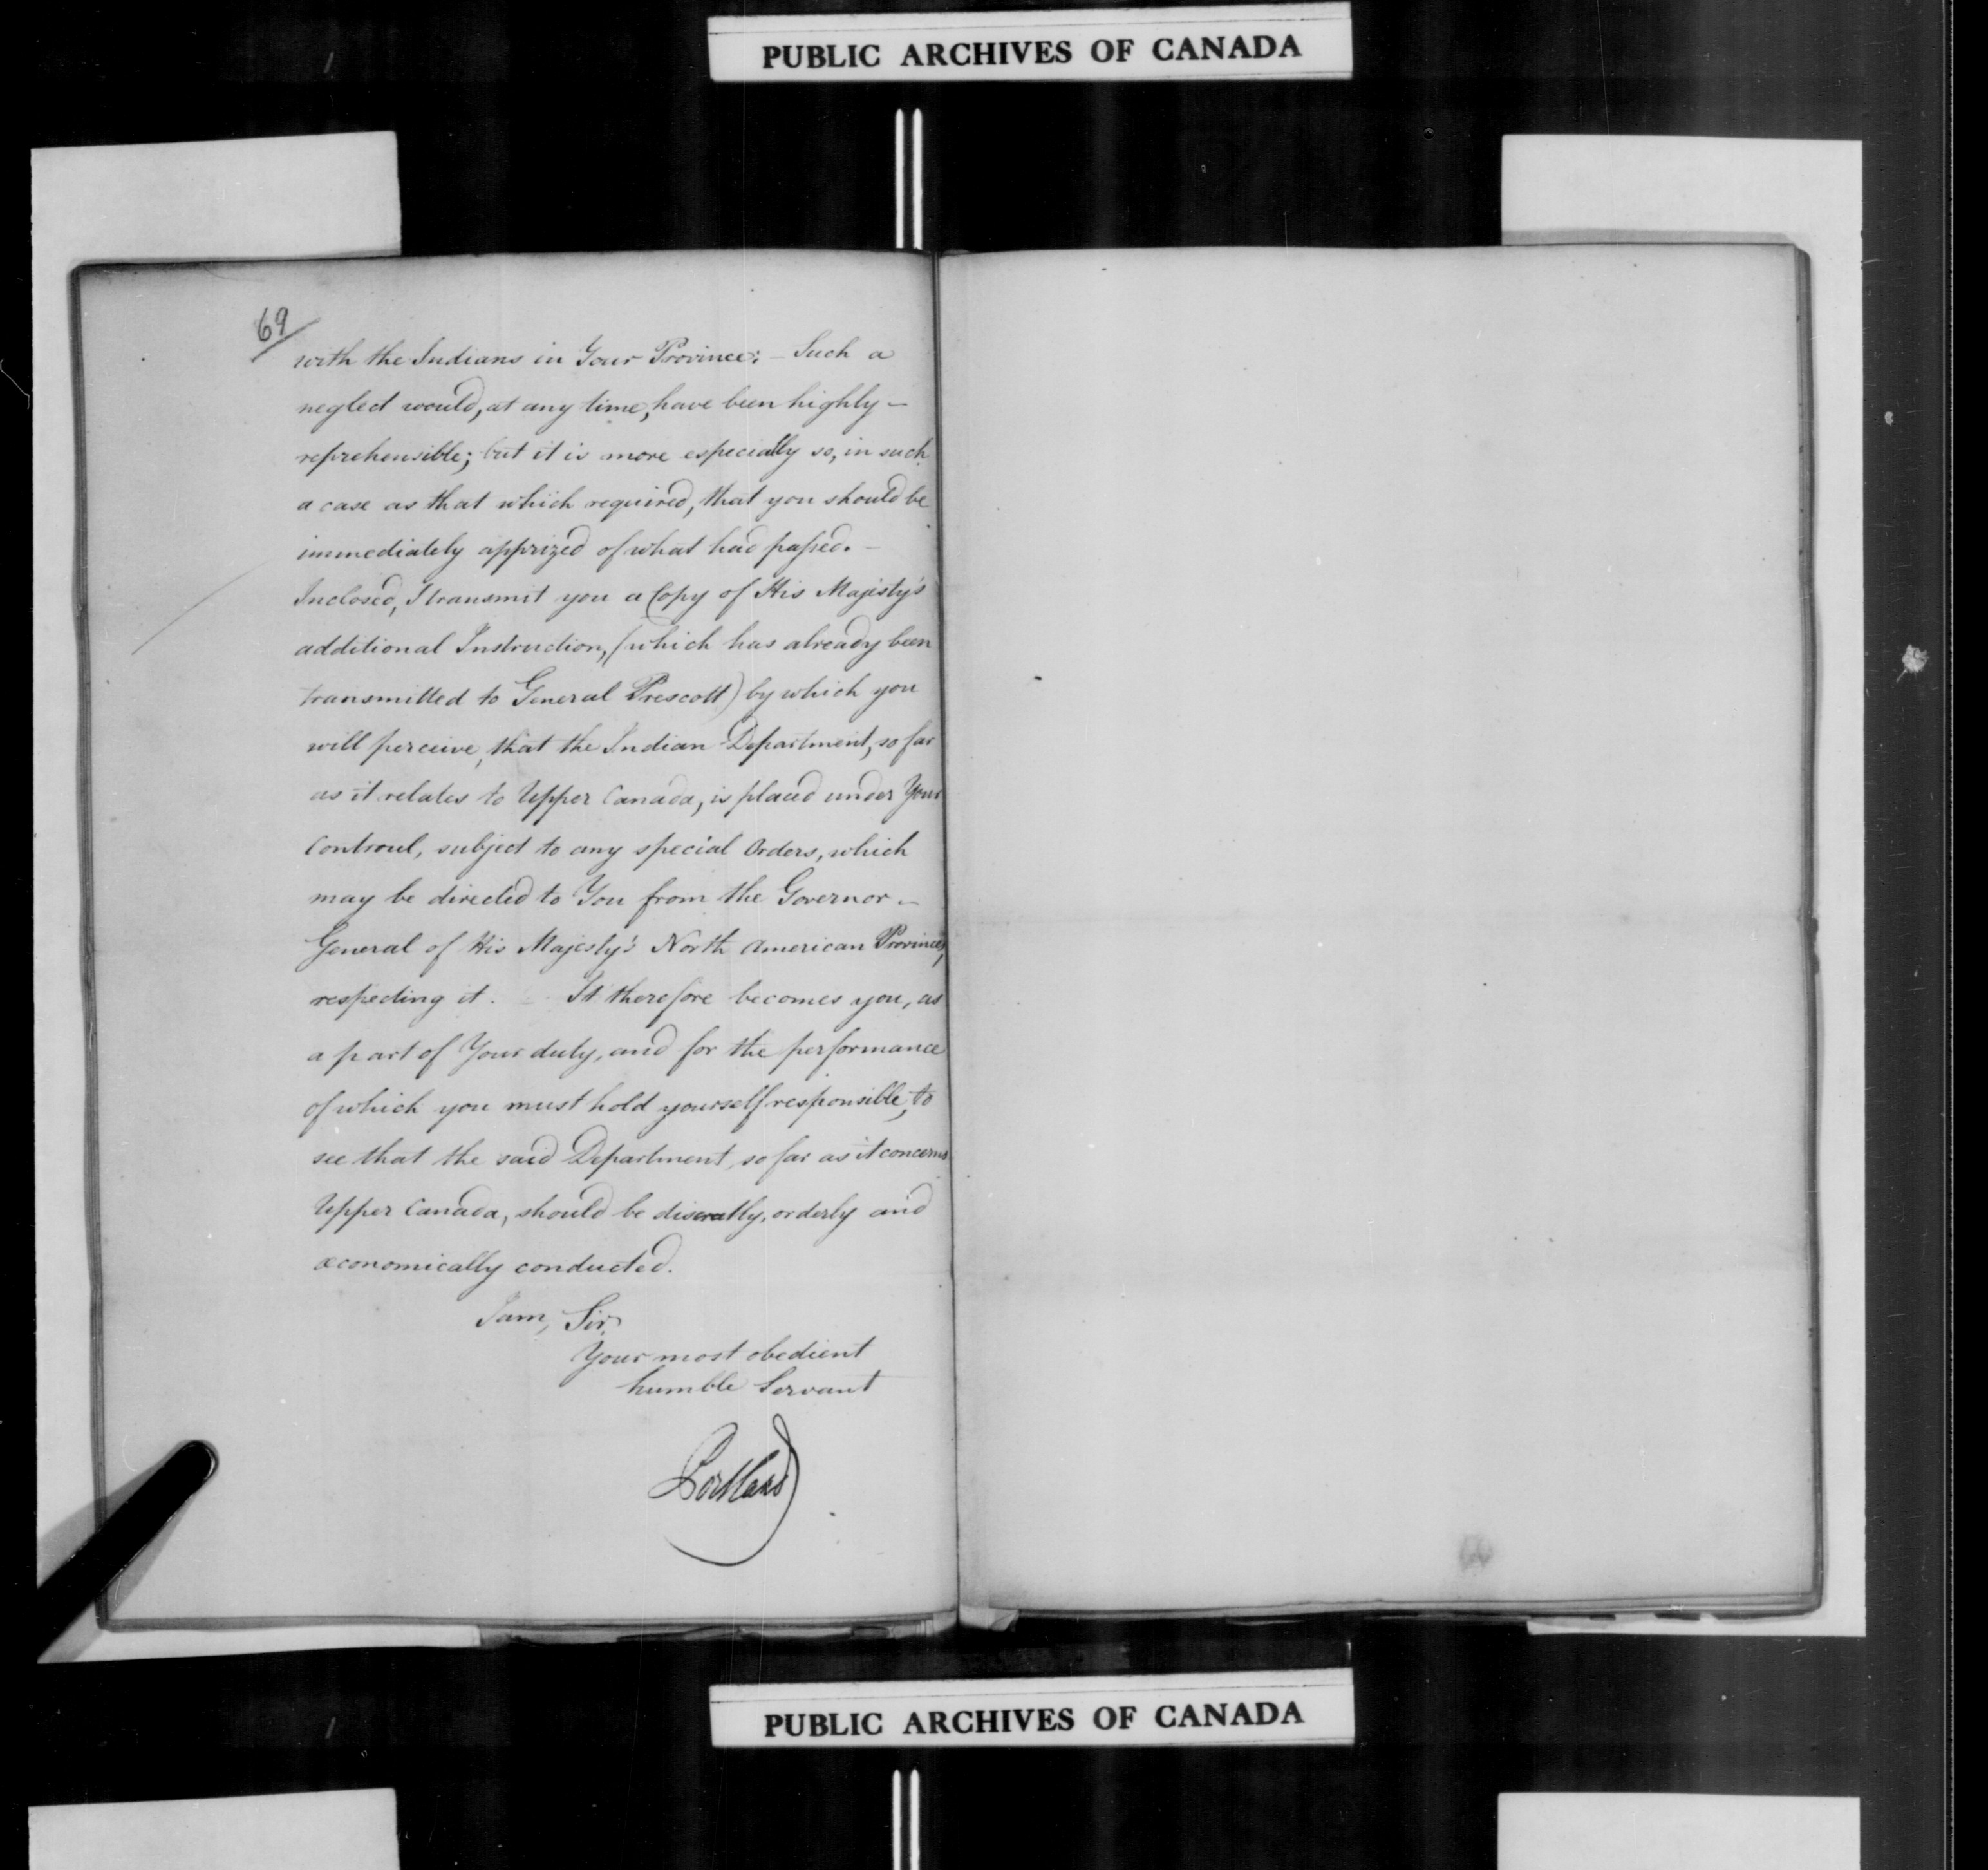 PUBLIC ARCHIVES OF CANADA
69
with the Indians in Your Province; – Such a
neglect would, at any time, have been highly –
reprehensible; but it is more especially so, in such
a case as that which required, that you should be
immediately apprized of what had passed. –
Inclosed, I transmit you a Copy of His Majesty's
additional Instruction, (which has already been
transmitted to General Prescott) by which you
will perceive, that the Indian Department, so far
as it relates to Upper Canada, is placed under Your
Controul, subject to any special Orders, which
may be directed to You from the Governor –
General of His Majesty's North American Provinces,
respecting it. It therefore becomes you, as
a part of Your duty, and for the performance
of which you must hold yourself responsible, to
see that the said Department, so far as it concerns
Upper Canada, should be discreetly, orderly and
œconomically conducted.
I am, Sir,
Your most obedient
humble Servant
Portland
PUBLIC ARCHIVES OF CANADA